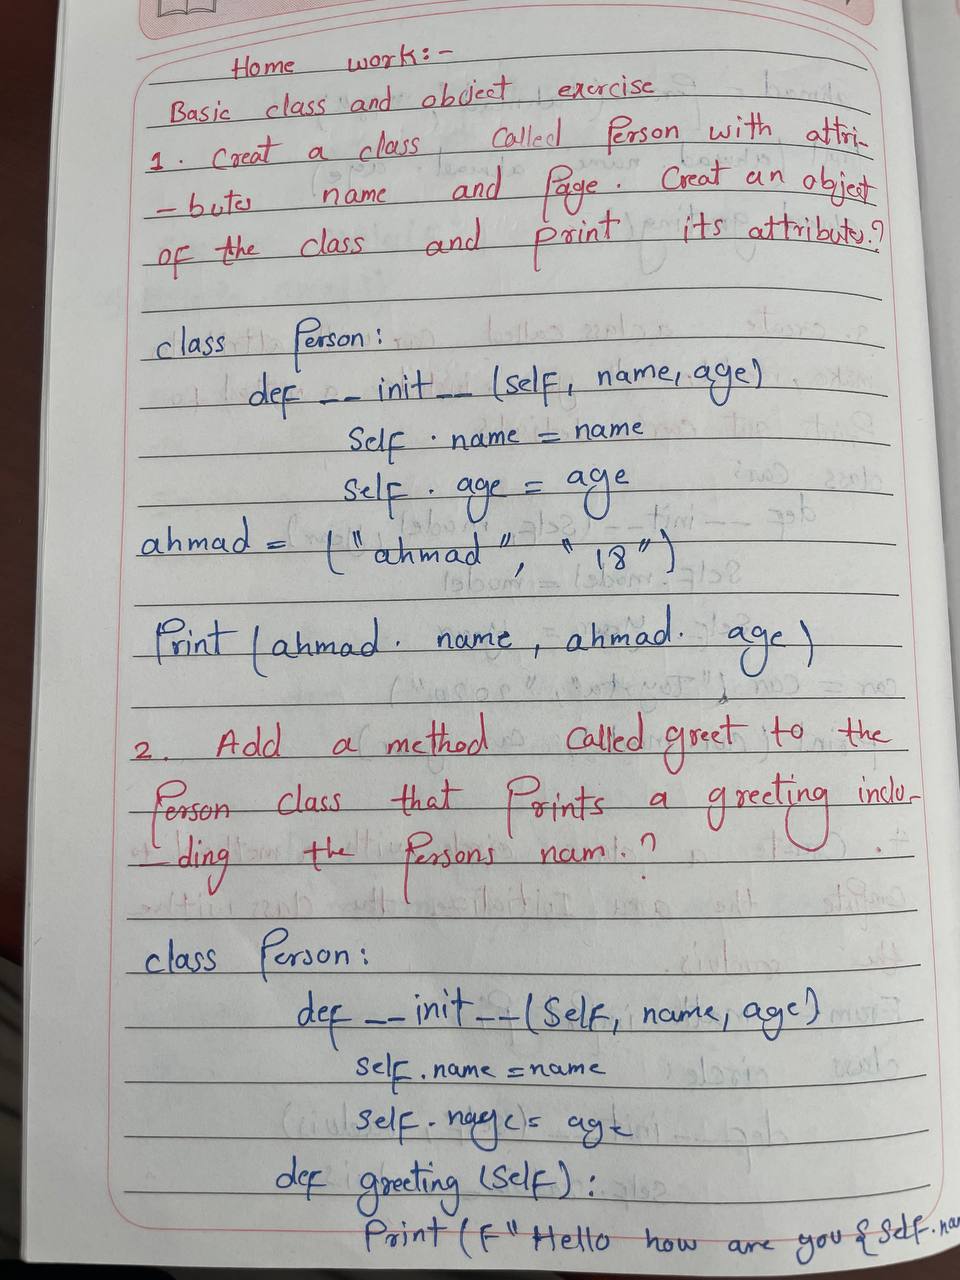 Home work:-
Basic class and object exercise
1. Creat a class called Person with attri-
-butes name and Page. Creat an object
of the class and print its attributes.?
class Person:
def __ init __ (self, name, age)
Self . name = name
Self . age = age
ahmad = ("ahmad", "18")
Print (ahmad. name, ahmad. age)
2. Add a method called greet to the
Person class that Prints a greeting inclu-
-ding the Persons nam.?
class Person:
def __ init __ (Self, name, age)
self.name = name
self. nage = age
def greeting (Self):
Print (F"Hello how are you {Self.na